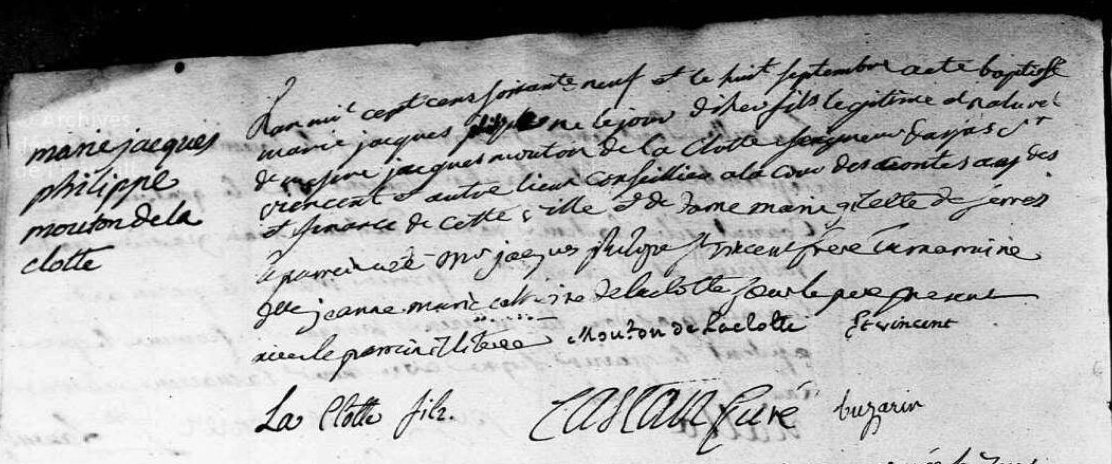 Archives
marie jacques
philippe
mouton de la
clotte
L'an mil sept cens soixante neuf et le huit septembre a ete baptisé
marie jacques philippe né le jour d'hier fils legitime et naturel
de messire jacques mouton de La Clotte seigneur
vincent et autre lieux conseillier a la cour des comtes aydes
et finance de cette ville et de dame marie de serres
le parrein a été Mr jacques philippe St vincent frere La marraine
Dlle jeanne marie catherine de la clotte soeur le pere present
avec le parrein Mouton de Laclotte St vincent
La Clotte fils. CASTAN Curé